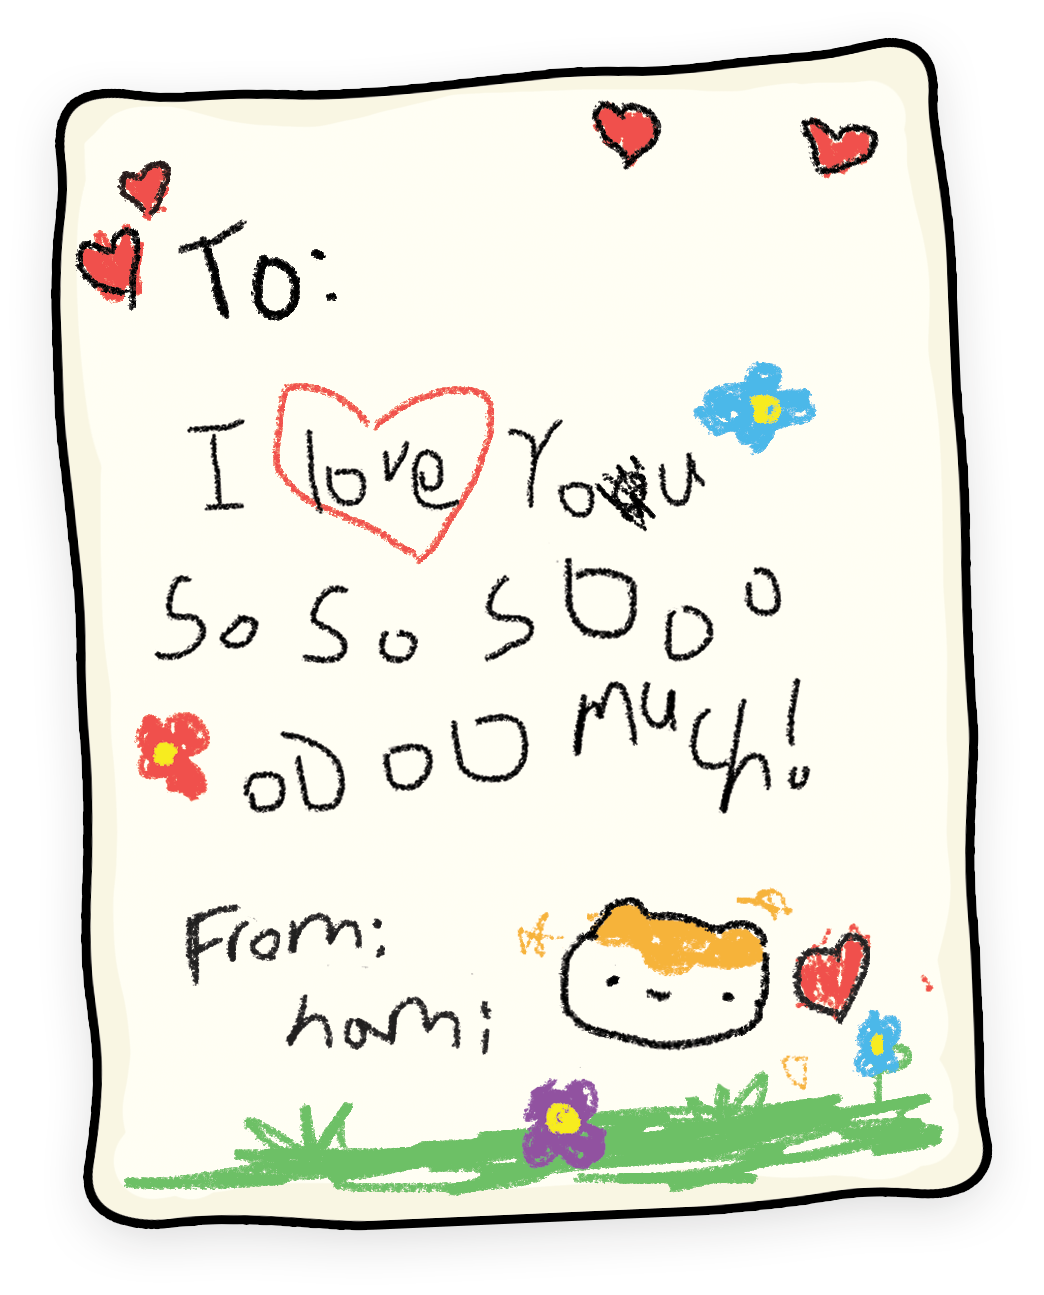 To:
I love You
So So SOOO
OOOO much!
From:
hami